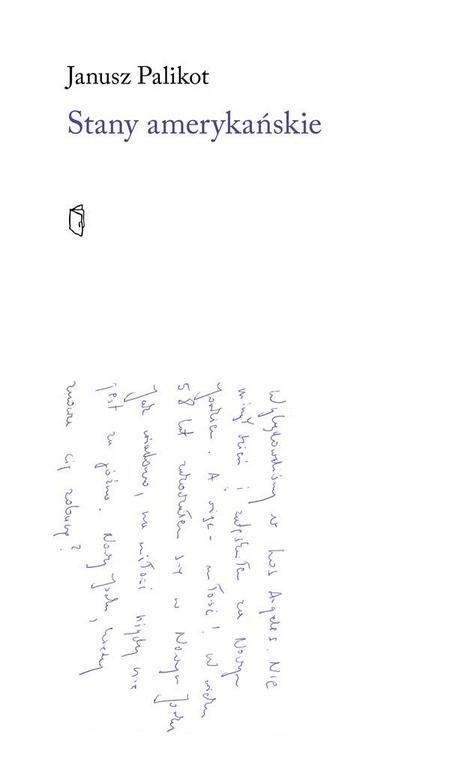 Janusz Palikot
Stany amerykańskie
Wylądowaliśmy w Los Angeles. Nie
minął dzień i za Nowym
Jorkiem. A więc – miłość! W wieku
58 lat zakochałem się w Nowym Jorku
Jak wiadomo, na miłość nigdy nie
jest za późno. Nowy Jorku, kiedy
znowu cię zobaczę?